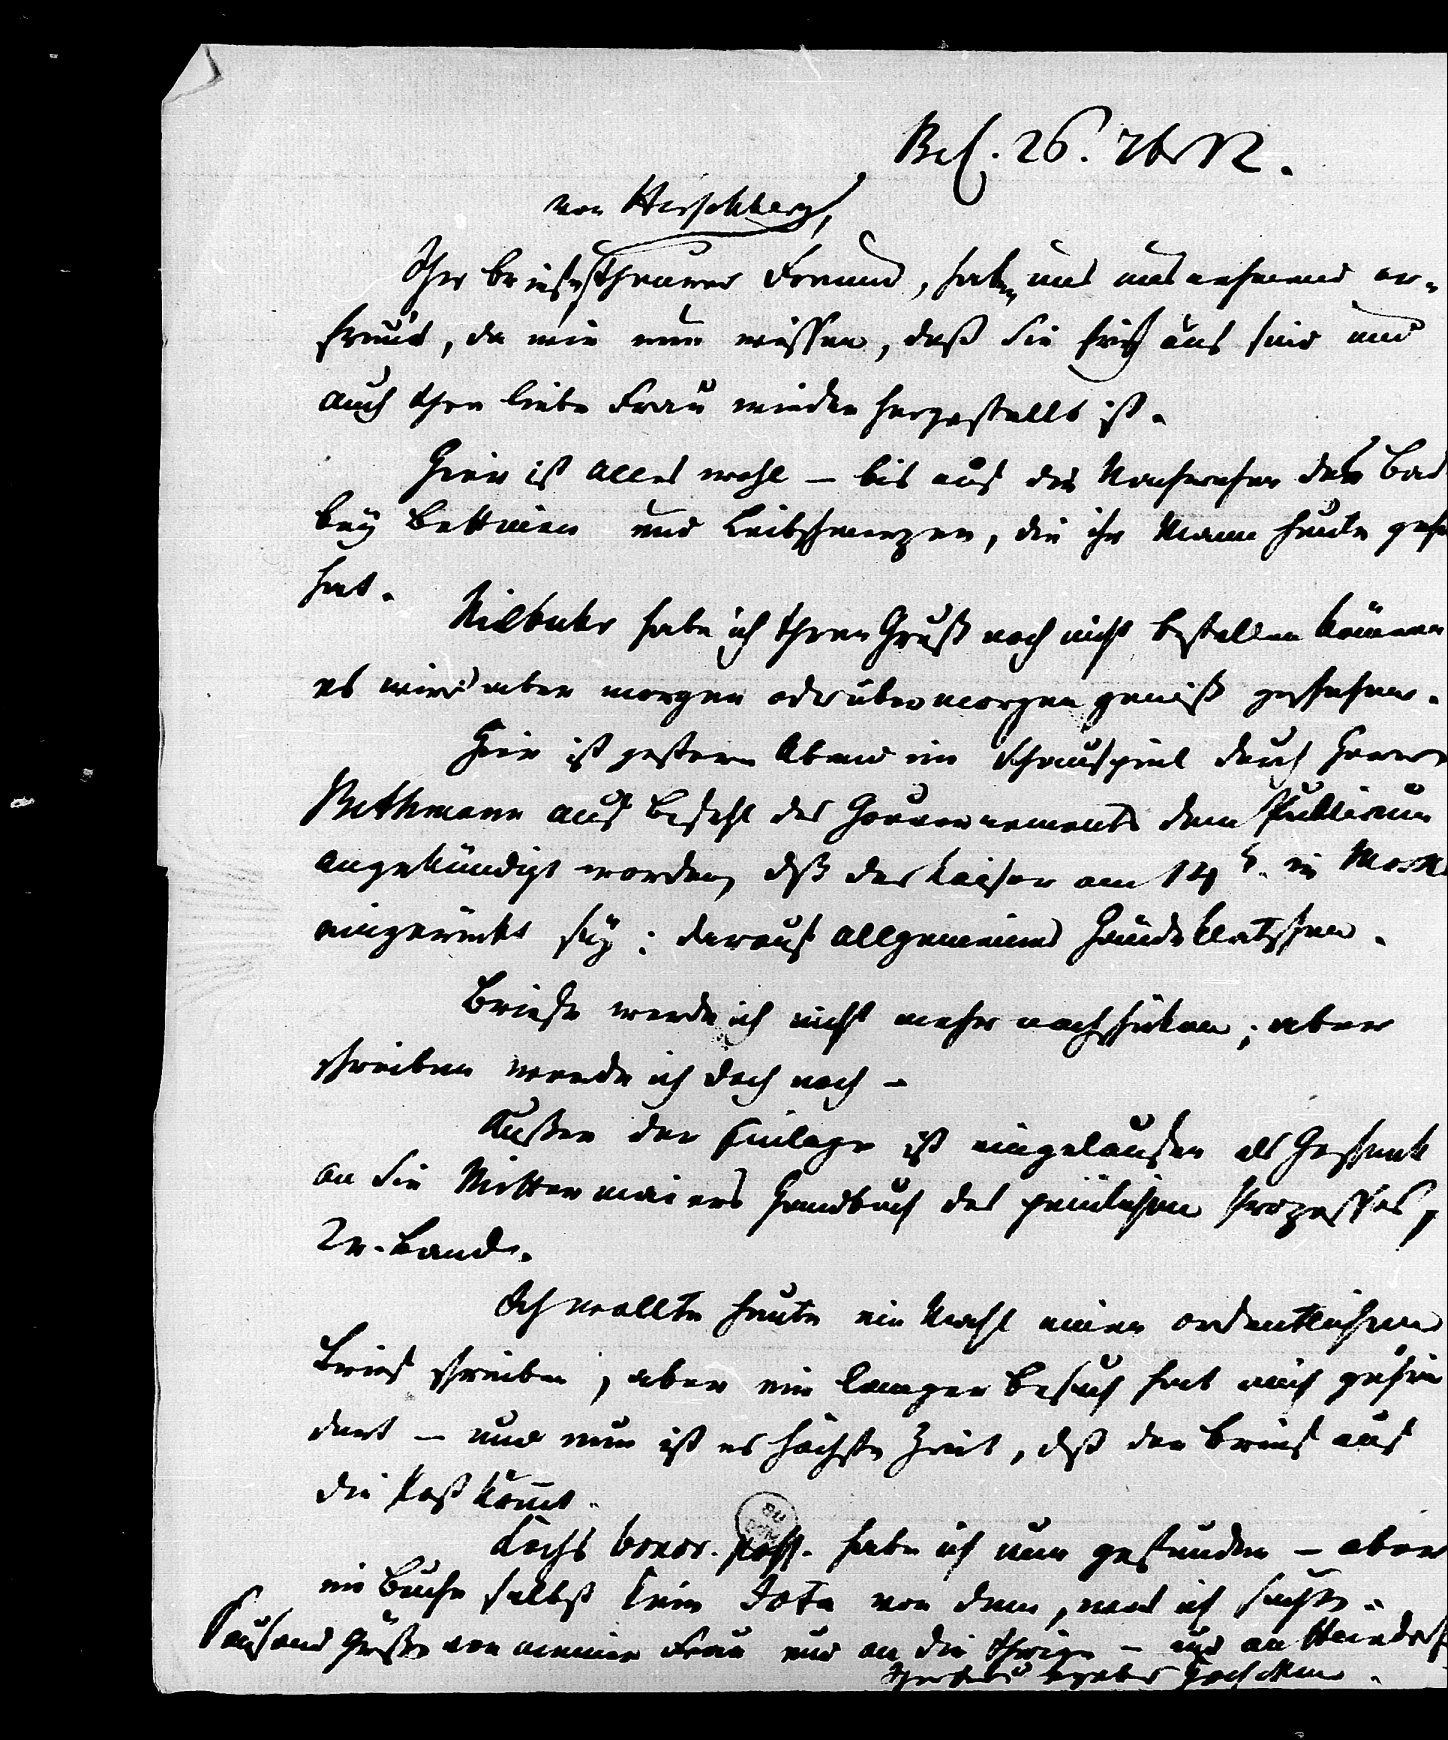 Bel. 26. 7br 12.
von Hirschberg,
Ihr Brief, theurer Freund, hat uns ausnehmend er-
freut, da wir nun wissen, daß Sie frisch auf sind und
auch Ihre liebe Frau wieder hergestellt ist.
Hier ist alles wohl – bis auf die des Bad
bey Bettinen und Leibschmerzen, die ihr Mann heute
hat.
Niebuhr habe ich Ihren Gruß noch nicht bestellen können
es wird aber morgen oder übermorgen gewiß geschehen.
Hier ist gestern Abend im Schauspiel durch Herrn
Bethmann auf Befehl des Gouvernements dem Publicum
angekündigt worden, dß der Kaiser am 14t. in Mosk
eingerückt sey: darauf allgemeines Händeklatschen.
Briefe werde ich nicht mehr nachschicken; aber
schreiben werde ich doch noch –
Außer der Einlage ist eingelaufen als Geschenk
an Sie Mittermaiers Handbuch des peinlichen Prozesses,
2r. Band.
Ich wollte heute ein Mahl einen ordentlichen
Brief schreiben, aber ein langer Besuch hat mich gehin
dert – und nun ist es höchste Zeit, dß der Brief auf
die Post kommt.
Kochs bonor. poss. habe ich nun gefunden – aber
im Buche selbst kein Jota von dem, was ich suchte.
Tausend Grüße von meiner Frau und an die Ihrige – und an
Göschen.